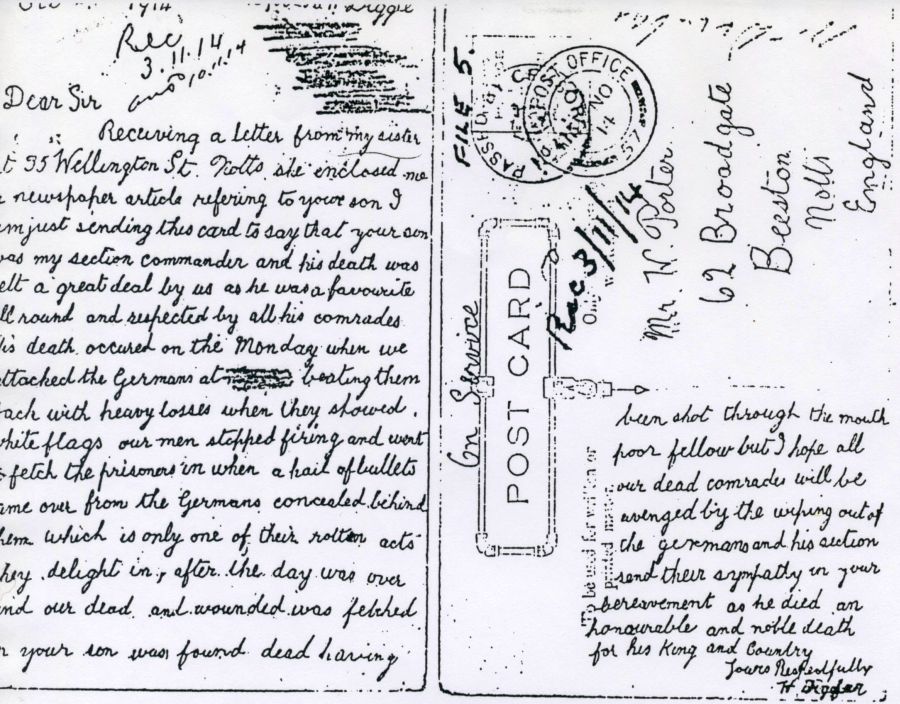 1914
Rec
3.11.14
ans 10.11.14
Dear Sir
Recieving a letter from my sister
at 35 Wellington St. Notts she enclosed me
a newspaper article refering to your son I
am just sending this card to say that your son
was my section commander and his death was
felt a great deal by us as he was a favourite
all round and respected by all his comrades
His death occured on the Monday when we
attacked the Germans at beating them
back with heavy losses when they showed
white flags our men stopped firing and went
to fetch the prisoners in when a hail of bullets
came over from the Germans concealed behind
them which is only one of their rotten acts
they delight in, after the day was over
and our dead and wounded was fetched
in your son was found dead having
FILE 5.
PASSED BY CENSOR
POST OFFICE
NO
14
57
Rec 3/11/14
On Service
POST CARD
Only
to be used for written or
printed matter
Mr. W. Porter
62 Broadgate
Beeston
Notts
England
been shot through the mouth
poor fellow but I hope all
our dead comrades will be
avenged by the wiping out of
the germans and his section
send their sympathy in your
bereavement as he died an
honourable and noble death
for his King and Country
Yours Respectfully